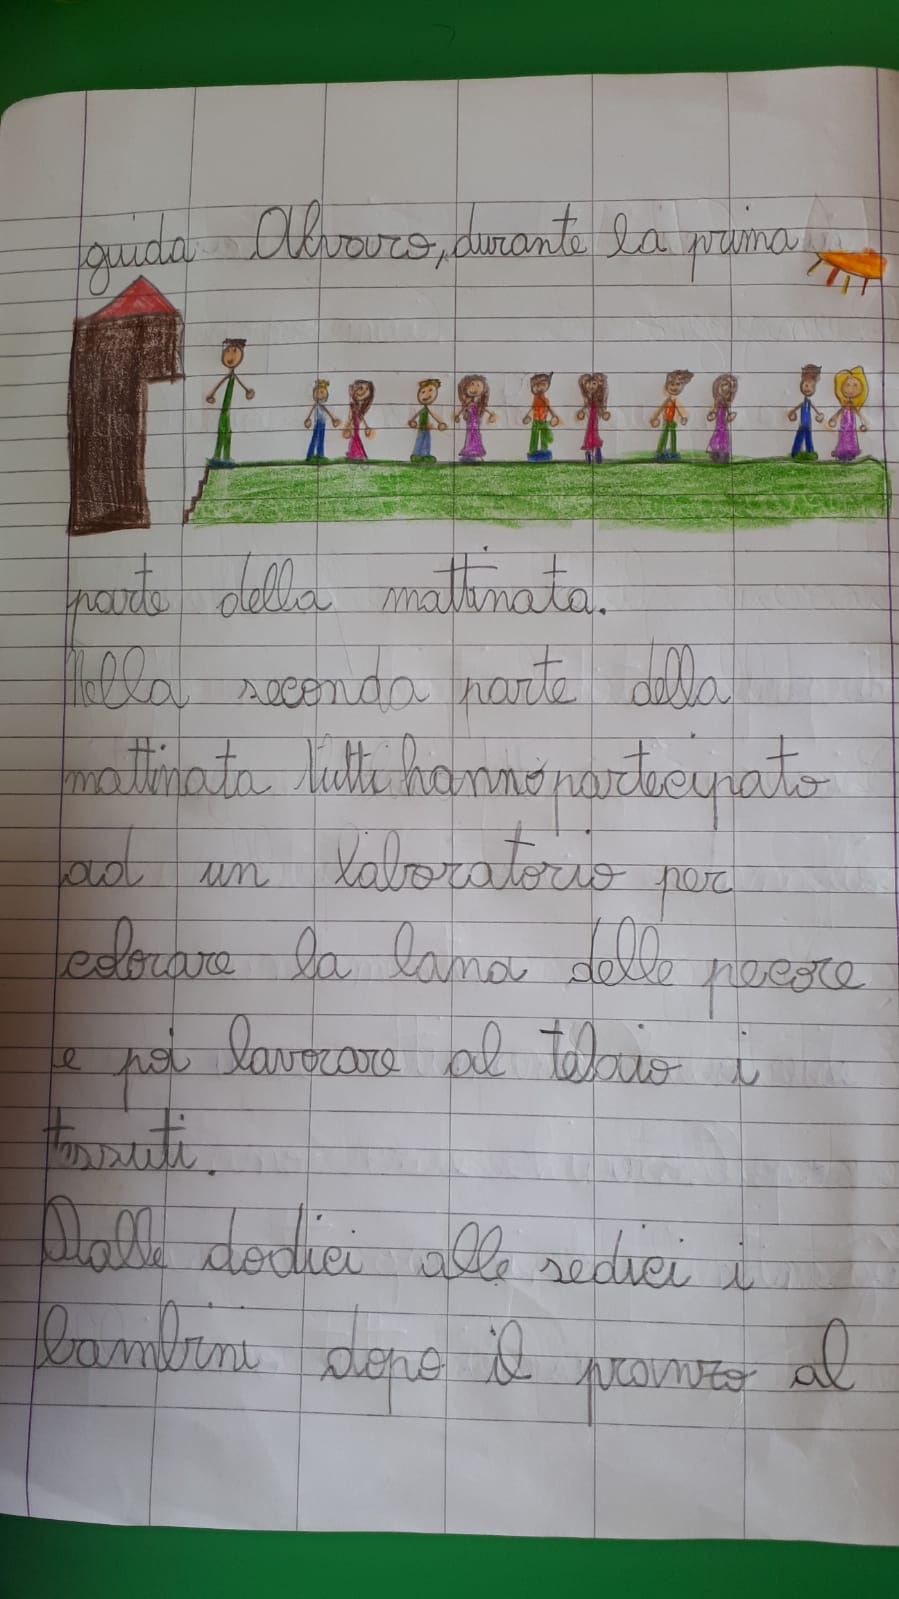 guida Alvaro, durante la prima
parte della mattinata.
Nella seconda parte della
mattinata tutti hanno partecipato
ad un laboratorio per
colorare la lana delle pecore
e poi lavorare al telaio i
tessuti.
Dalle dodici alle sedici i
bambini dopo il pranzo al